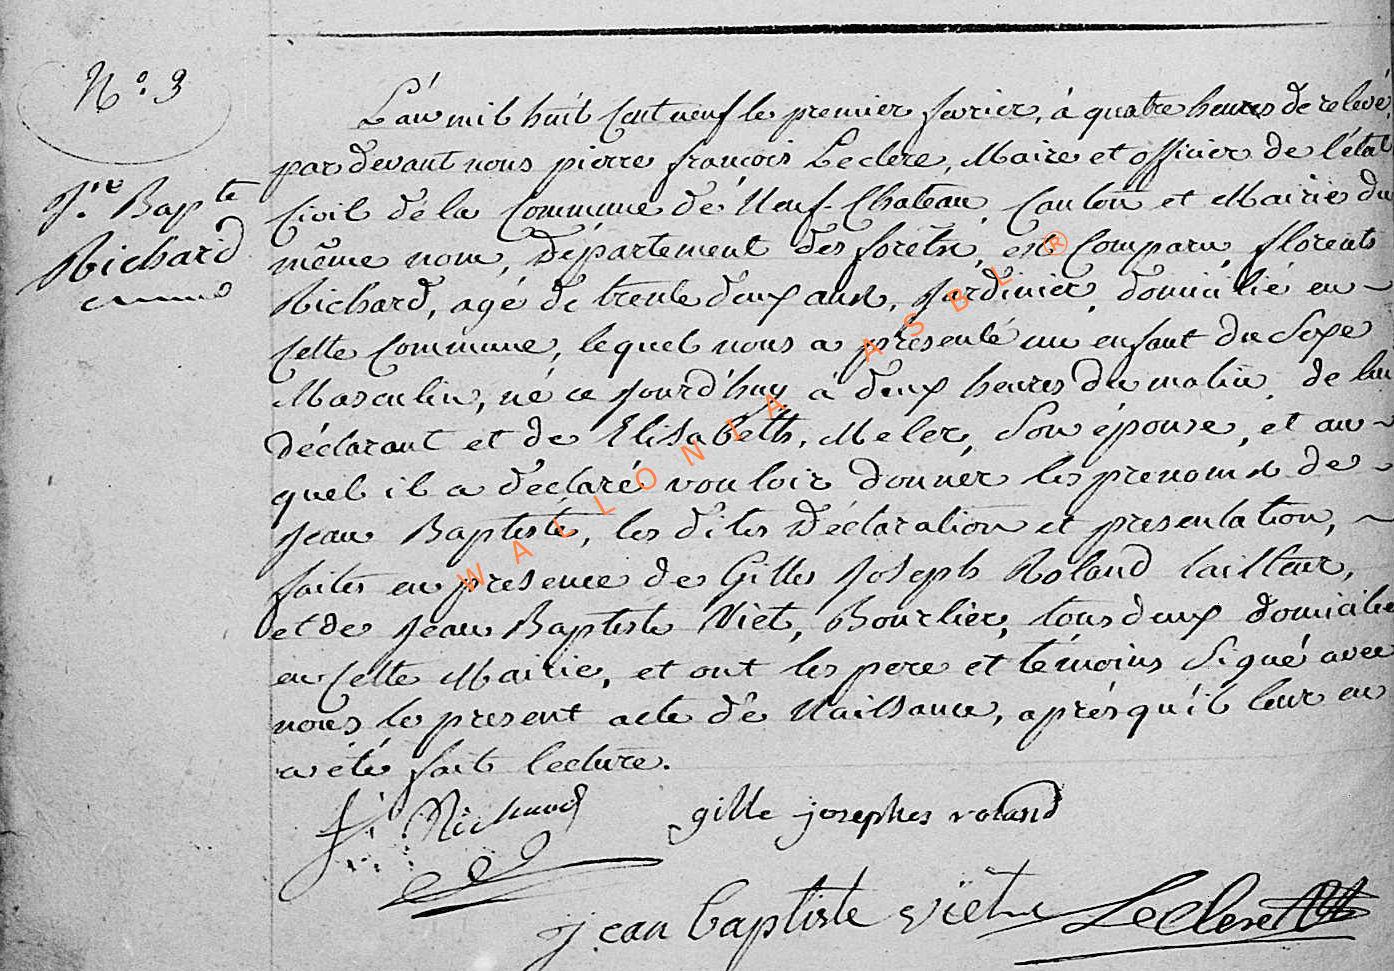 N.° 3
J.n Bapte
Richard
L'an mil huit cent neuf le premier fevrier, à quatre heures de relevé,
par devant nous pierre françois Leclere, Maire et officier de l'état
Civil de la Commune de Neuf-Chateau, Canton et Mairie du
même nom, Département des forêts, est Comparu florent
Richard, agé de trente deux ans, Jardinier, domicilié en
cette Commune, lequel nous a présenté un enfant du Sexe
Masculin, né ce jourd'huy à deux heures du matin, de lui
déclarant et de Elisabeth, Meler, Son épouse, et au-
quel il a déclaré vouloir donner les prenoms de
Jean Baptiste, les dites Déclaration et presentation,
faites en presence de Gilles Joseph Roland tailleur,
et de Jean Baptiste Viet, Bourlier, tous deux domicilié
en cette Mairie, et ont les pere et témoins Signé avec
nous le present acte de Naissance, après qu'il leur en
a été fait lecture.
f. Richard gille josephes roland
jean baptiste viètre Leclere
WALLONIA ASBL ®